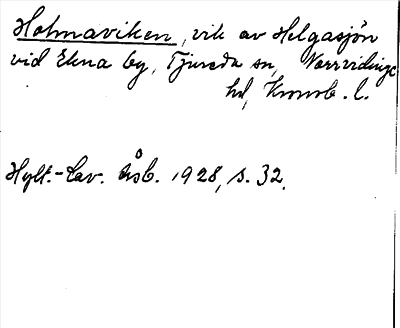 Holmaviken, vik av Helgasjön
vid Ekna by, Tjureda sn, Norrvidinge
hd, Kronob. l.
Hylt.-Cav. Åsb. 1928, s. 32.